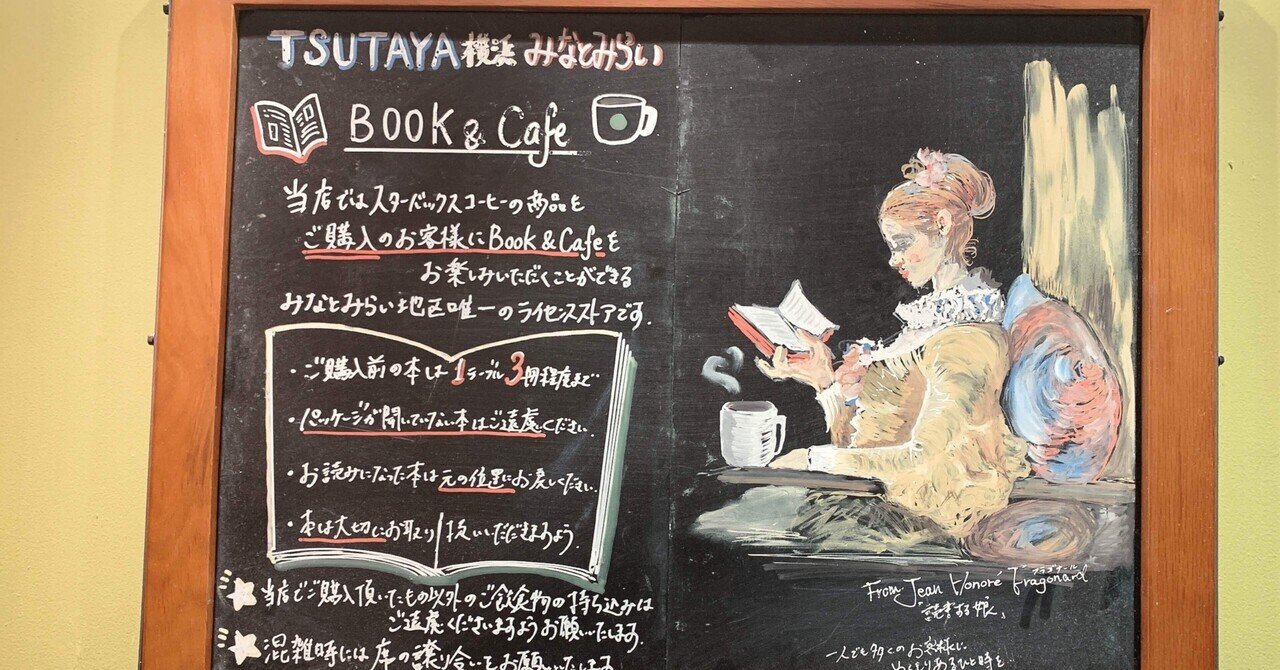 TSUTAYA 横浜 みなとみらい
BOOK & Cafe
当店ではスターバックスコーヒーの商品を
ご購入のお客様にBook & Cafeを
お楽しみいただくことができる
みなとみらい地区唯一のライセンスストアです.
・ご購入前の本は1テーブル3冊程度まで
・パッケージが開いていない本はご遠慮ください.
・お読みになった本は元の位置にお戻しください.
・本は大切にお取り扱いいただきますよう.
当店でご購入頂いたもの以外のご飲食物の持ち込みは
ご遠慮くださいますようお願いいたします.
混雑時には席の譲り合いをお願いいたします
From Jean Honoré Fragonard
フラゴナール
「読書する娘」
一人でも多くのお客様に
ゆとりあるひと時を